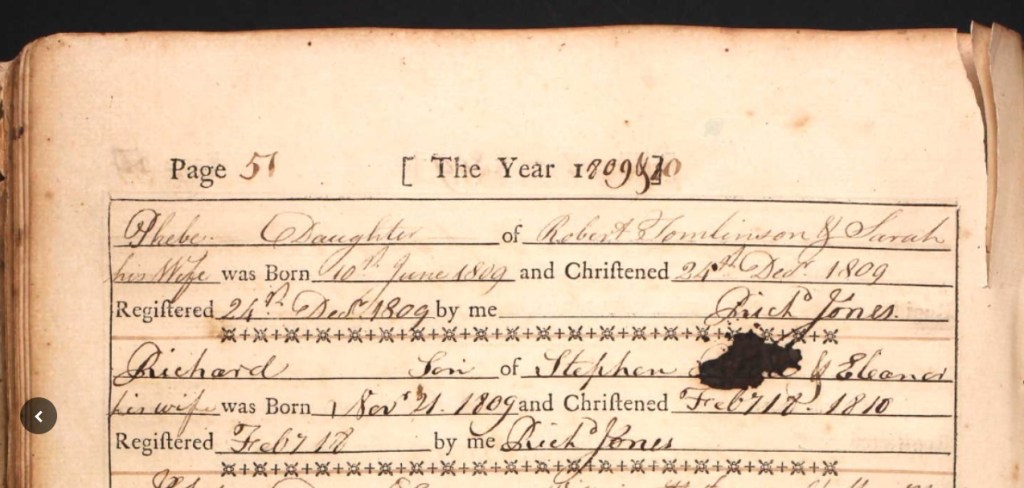 Page 51 [ The Year 1809 & 10
Phebe Daughter of Robert Tomlinson & Sarah
his Wife was Born 10th June 1809 and Chriſtened 24th Decr 1809
Regiſtered 24th Decr 1809 by me Richd Jones.
Richard Son of Stephen & Eleanor
his wife was Born Novr 21. 1809 and Chriſtened Feby 18. 1810
Regiſtered Feby 18 by me Richd Jones